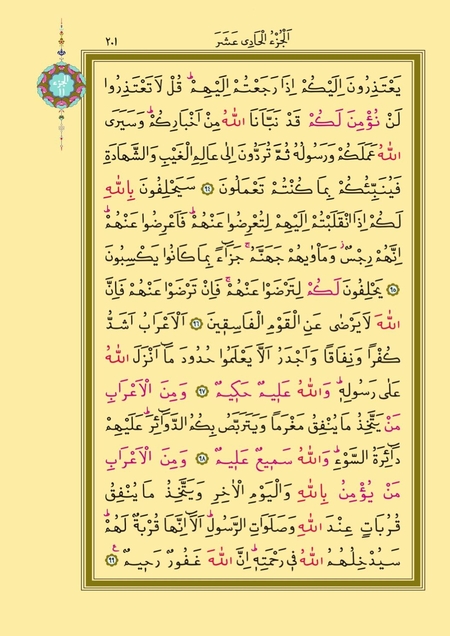 اَلْجُزْءُ الْحَادِى عَشَرَ
٢٠١
الجزء
١١
يَعْتَذِرُونَ اِلَيْكُمْ اِذَا رَجَعْتُمْ اِلَيْهِمْۜ قُلْ لَا تَعْتَذِرُوا
لَنْ نُؤْمِنَ لَكُمْ قَدْ نَبَّاَنَا اللّٰهُ مِنْ اَخْبَارِكُمْۜ وَسَيَرَى
اللّٰهُ عَمَلَكُمْ وَرَسُولُهُ ثُمَّ تُرَدُّونَ اِلٰى عَالِمِ الْغَيْبِ وَالشَّهَادَةِ
فَيُنَبِّئُكُمْ بِمَا كُنْتُمْ تَعْمَلُونَ ﴿٩٤﴾ سَيَحْلِفُونَ بِاللّٰهِ
لَكُمْ اِذَا انْقَلَبْتُمْ اِلَيْهِمْ لِتُعْرِضُوا عَنْهُمْۜ فَاَعْرِضُوا عَنْهُمْۜ
اِنَّهُمْ رِجْسٌۘ وَمَأْوٰيهُمْ جَهَنَّمُۚ جَزَٓاءً بِمَا كَانُوا يَكْسِبُونَ
﴿٩٥﴾ يَحْلِفُونَ لَكُمْ لِتَرْضَوْا عَنْهُمْۚ فَاِنْ تَرْضَوْا عَنْهُمْ فَاِنَّ
اللّٰهَ لَا يَرْضٰى عَنِ الْقَوْمِ الْفَاسِقٖينَ ﴿٩٦﴾ اَلْاَعْرَابُ اَشَدُّ
كُفْرًا وَنِفَاقًا وَاَجْدَرُ اَلَّا يَعْلَمُوا حُدُودَ مَٓا اَنْزَلَ اللّٰهُ
عَلٰى رَسُولِهٖۜ وَاللّٰهُ عَلٖيمٌ حَكٖيمٌ ﴿٩٧﴾ وَمِنَ الْاَعْرَابِ
مَنْ يَتَّخِذُ مَا يُنْفِقُ مَغْرَمًا وَيَتَرَبَّصُ بِكُمُ الدَّوَٓائِرَۜ عَلَيْهِمْ
دَٓائِرَةُ السَّوْءِۜ وَاللّٰهُ سَمٖيعٌ عَلٖيمٌ ﴿٩٨﴾ وَمِنَ الْاَعْرَابِ
مَنْ يُؤْمِنُ بِاللّٰهِ وَالْيَوْمِ الْاٰخِرِ وَيَتَّخِذُ مَا يُنْفِقُ
قُرُبَاتٍ عِنْدَ اللّٰهِ وَصَلَوَاتِ الرَّسُولِۜ اَلَٓا اِنَّهَا قُرْبَةٌ لَهُمْۜ
سَيُدْخِلُهُمُ اللّٰهُ فٖى رَحْمَتِهٖۜ اِنَّ اللّٰهَ غَفُورٌ رَحٖيمٌ ﴿٩٩﴾